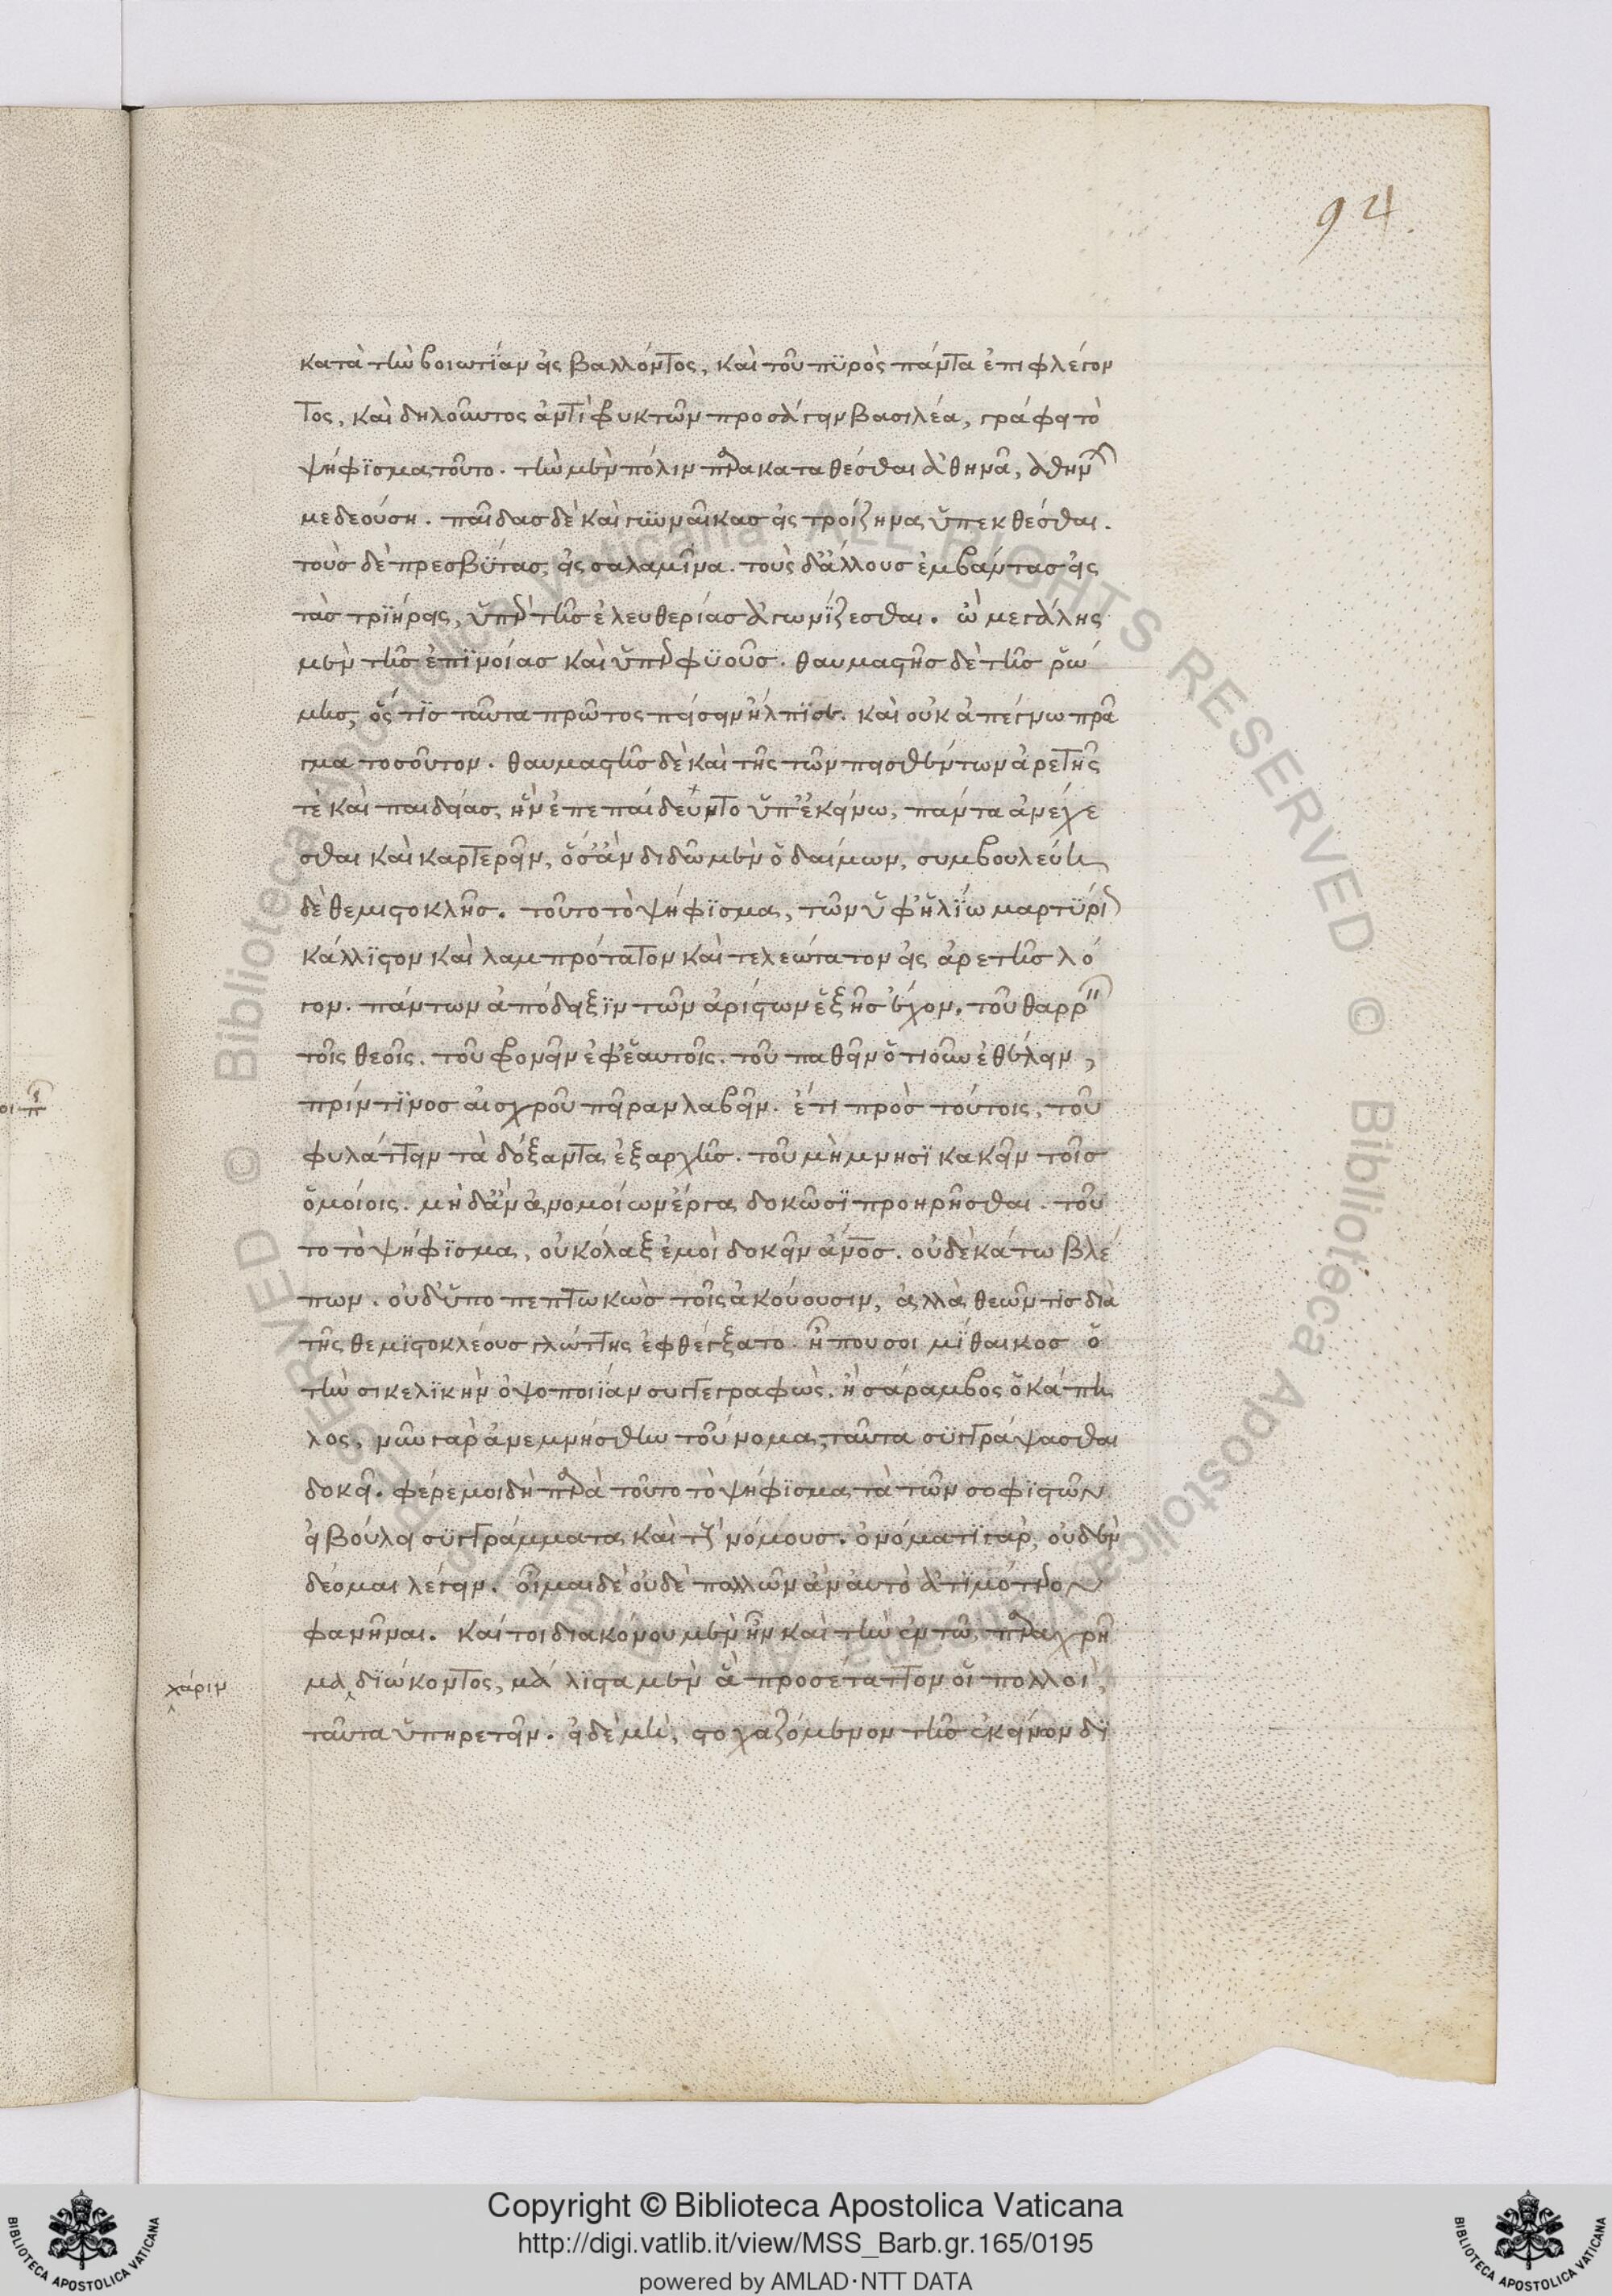 94.
κατὰ τὴν βοιωτίαν εἰς βαλλόντος, καὶ τοῦ πϋρὸς πάντα ἐπιφλέγον
τος, καὶ δηλοῦντος ἀντὶ φυκτῶν πρὸς λέγειν βασιλέα, γράφει τὸ
ψήφϊσμα τοῦτο. τὴν μὲν πόλιν παρακαταθέσθαι ἀθηνᾶ, ἀθηνῶν
μεδεούση. παῖδας δὲ καὶ γυναῖκας εἰς τροίζηνα ὑπεκθέσθαι.
τοὺς δὲ πρεσβύτας, εἰς σαλαμῖνα. τοὺς δ' ἄλλους ἐμβάντας εἰς
τὰς τριήρεις, ὑπὲρ τῆς ἐλευθερίας ἀγωνίζεσθαι. ὢ μεγάλης
μὲν τῆς ἐπϊνοίας καὶ ὑπερφϋοῦς. θαυμαστῆς δὲ τῆς ῥώ
μης, ὅς τϊς ταῦτα πρῶτος πείσειν ἤλπϊσε. καὶ οὐκ ἀπέγνω πρᾶ
γμα τοσοῦτον. θαυμαστῆς δὲ καὶ τῆς τῶν πεισθέντων ἀρετῆς
τὲ καὶ παιδείας, ἣν ἐπεπαίδευντο ὑπ' ἐκείνω, πάντα ἀνέχε
σθαι καὶ καρτερεῖν, ὅσ' ἂν διδῶ μὲν ὁ δαίμων, συμβουλεύη
δὲ θεμιστοκλῆς. τοῦτο τὸ ψήφϊσμα, τῶν ὑφ' ἡλίω μαρτϋρίων
κάλλϊστον καὶ λαμπρότατον καὶ τελεώτατον εἰς ἀρετῆς λό
γον. πάντων ἀπόδειξϊν τῶν ἀρίστων ἑξῆς ἔχον. τοῦ θαρρεῖν
τοῖς θεοῖς. τοῦ φρονεῖν ἐφ' ἑαυτοῖς. τοῦ παθεῖν ὁτιοῦν ἐθέλειν,
πρίν τϊνος αἰσχροῦ πεῖραν λαβεῖν. ἔτι πρὸς τούτοις, τοῦ
φυλάττειν τὰ δόξαντα ἐξαρχῆς. τοῦ μὴ μνησϊκακεῖν τοῖς
ὁμοίοις. μὴ δ' ἂν ἀνομοίων ἔργα δοκῶσϊ προηρῆσθαι. τοῦ
το τὸ ψήφϊσμα, οὐ κόλαξ ἐμοὶ δοκεῖν ἀνος. οὐδὲ κάτω βλέ
πων. οὐδ' ὑποπεπτωκὼς τοῖς ἀκούουσιν, ἀλλὰ θεῶν τὶς διὰ
τῆς θεμϊστοκλέους γλώττης ἐφθέγξατο. ἦ που σοι μίθαικος ὁ
τὴν σικελϊκὴν ὀψοποιΐαν συγγεγραφὼς. ἢ σάραμβος ὁ κάπη
λος, νῦν γὰρ ἀνεμνήσθην τοὔνομα, ταῦτα σϋγγράψασθαι
δοκεῖ. φέρε μοι δὴ παρὰ τοῦτο τὸ ψήφϊσμα τὰ τῶν σοφϊστῶν
εἰ βούλει σϋγγράμματα καὶ τοὺς νόμους. ὀνόματϊ γὰρ, οὐδὲν
δέομαι λέγειν. οἶμαι δὲ οὐδὲ πολλῶν ἂν αὐτὸ ἀτϊμότερον
φανῆναι. καίτοι διακόνου μὲν ἦν καὶ τὴν ἐν τῶ παραχρῆ
μα διώκοντος, μάλϊστα μὲν ἃ προσέταττον οἱ πολλοὶ,
χάριν
ταῦτα ὑπηρετεῖν. εἰ δὲ μὴ, στοχαζόμενον τῆς ἐκείνων δϊ
Copyright © Biblioteca Apostolica Vaticana
http://digi.vatlib.it/view/MSS_Barb.gr.165/0195
powered by AMLAD·NTT DATA